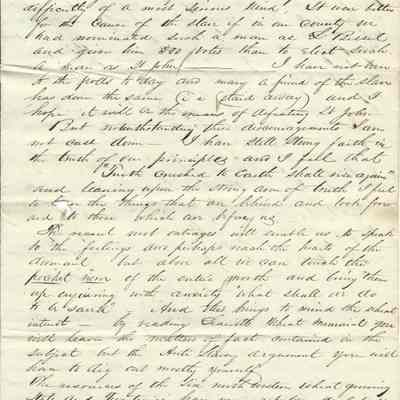 of a most serious kind. It were better
for the cause of the slave if in our county we
had nominated such a man as L. Bissell
and given him 200 votes than to elect such
a man as St John I have not been
to the polls to day and many a friend of the slave
has done the same (i e staid away) and I
hope it will be the means of defeating St John
But notwithstanding these discouragements I am
not cast down — I have still strong faith in
the truth of our principles and I feel that
"Truth crushed to Earth shall rise again"
and leaning upon the strong arm of truth I feel
to the things that are behind and look forw
ard to those which are before us
The recent mob outrages will enable us to speak
to the feelings and perhaps reach the hearts of the
but above all we can touch the
pocket nerve of the entire north and bring them
up enquiring with anxiety "what shall we do
to be saved", And this brings to mind the wheat
interest — by reading Leavitts Wheat Memorial you
will learn the matters of fact contained in the
subject but the Anti Slavery argument you will
have to dig out mostly yourself
The resources of the five north western wheat growing
States and Territories